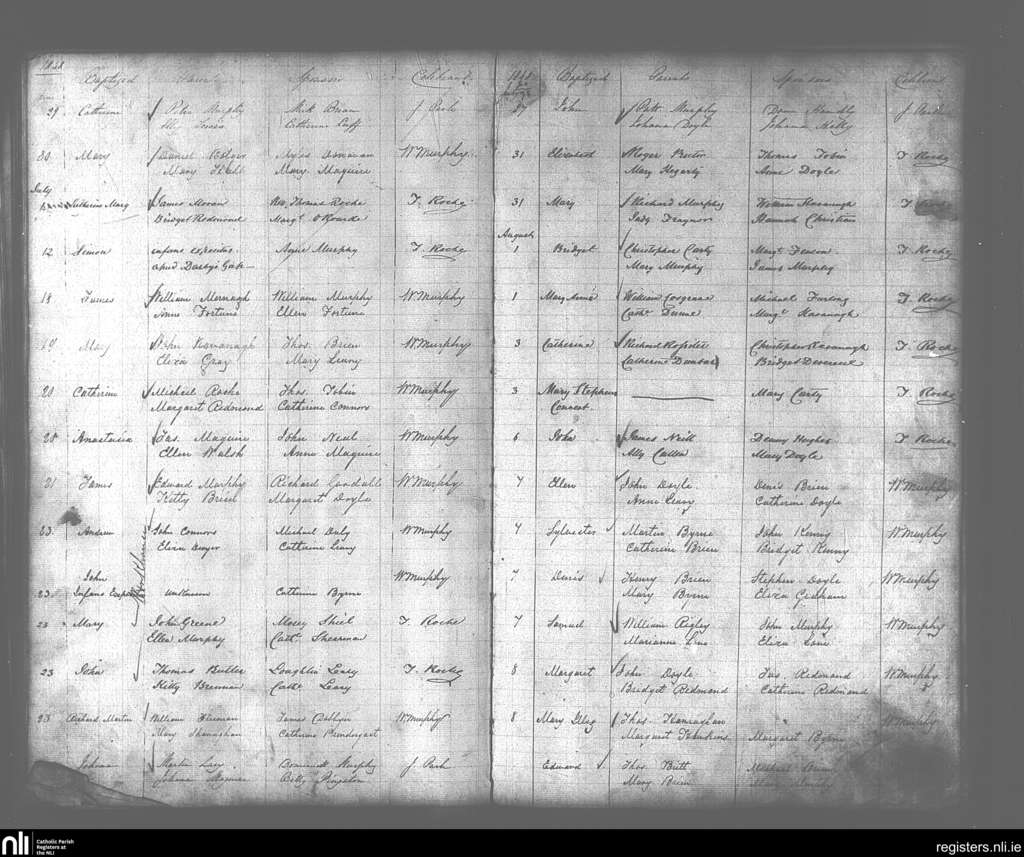 1848
Baptized Parents Sponsors Celebrant
29 Catherine Peter Murphy Mick Brien J Park
Catherine
30 Mary Daniel Bolger Myles Donovan W Murphy
Mary Mary Maguire
July
Catherine Mary James Moran Rev. Thomas Roche T. Roche
Bridget Redmond Margt. O'Rourke
12 Simon infans expositus Anne Murphy T. Roche
apud Darby's Gap
14 James William Murnagh William Murphy W Murphy
Anne Fortune Ellen Fortune
19 Mary John Kavanagh Thos. Brien W. Murphy
Eliza Gray Mary Leary
20 Catherine Michael Roche Thos. Tobin W Murphy
Margaret Redmond Catherine Connors
20 Anastasia Jas. Maguire John Neal W Murphy
Ellen Walsh Anne Maguire
21 James Edward Murphy Richard Goodall W Murphy
Kitty Brien Margaret Doyle
23 Andrew John Connors Michael Daly W Murphy
Eliza Dwyer Catherine Leary
John W Murphy
23 Infans Expos unknown Catherine Byrne
23 Mary John Greene Mosey Shiel T. Roche
Ellen Murphy Cathe. Sheerman
23 John Thomas Butler Loughlin Leary T. Roche
Kitty Brennan Cathe. Leary
23 Richard Martin William James W Murphy
Mary Shanaghan Catherine Prendergast
Johana Martin Murphy J Park
Johana Betty
1848
Baptized Parents Sponsors Celebrant
John Patt Murphy J Park
Johana Doyle Johana Kelly
31 Elizabeth Roger Thomas Tobin T. Roche
Mary Hogarty Anne Doyle
31 Mary Richard Murphy William Kavanagh T. Roche
Judy Traynor Hannah Christian
August
1 Bridget Christopher Carty Margt. T. Roche
Mary Murphy James Murphy
1 Mary Anne William Cosgrave Michael Furlong T. Roche
Cathe. Dunne Margt. Kavanagh
3 Catherine Richard Rossiter Christopher Kavanagh T. Roche
Catherine Dunbar Bridget Devereux
3 Mary Stephens Mary Carty T. Roche
Convert
6 John James Neill Denny Hughes T. Roche
Ally Cullen Mary Doyle
7 Ellen John Doyle Denis Brien W Murphy
Anne Leary Catherine Doyle
7 Sylvester Martin Byrne John Kenny W Murphy
Catherine Brien Bridget Kenny
7 Denis Henry Brien Stephen Doyle W Murphy
Mary Byrne Eliza Graham
7 Samuel William Rigley John Murphy W Murphy
Marianne Lane Eliza Lane
8 Margaret John Doyle Jas. Redmond W Murphy
Bridget Redmond Catherine Redmond
8 Mary Thos. Hanraghan W Murphy
Margaret Margaret Byrne
Edward Thos. Britt Michael
Mary Brien Mary
nli Catholic Parish
Registers at
the NLI
registers.nli.ie